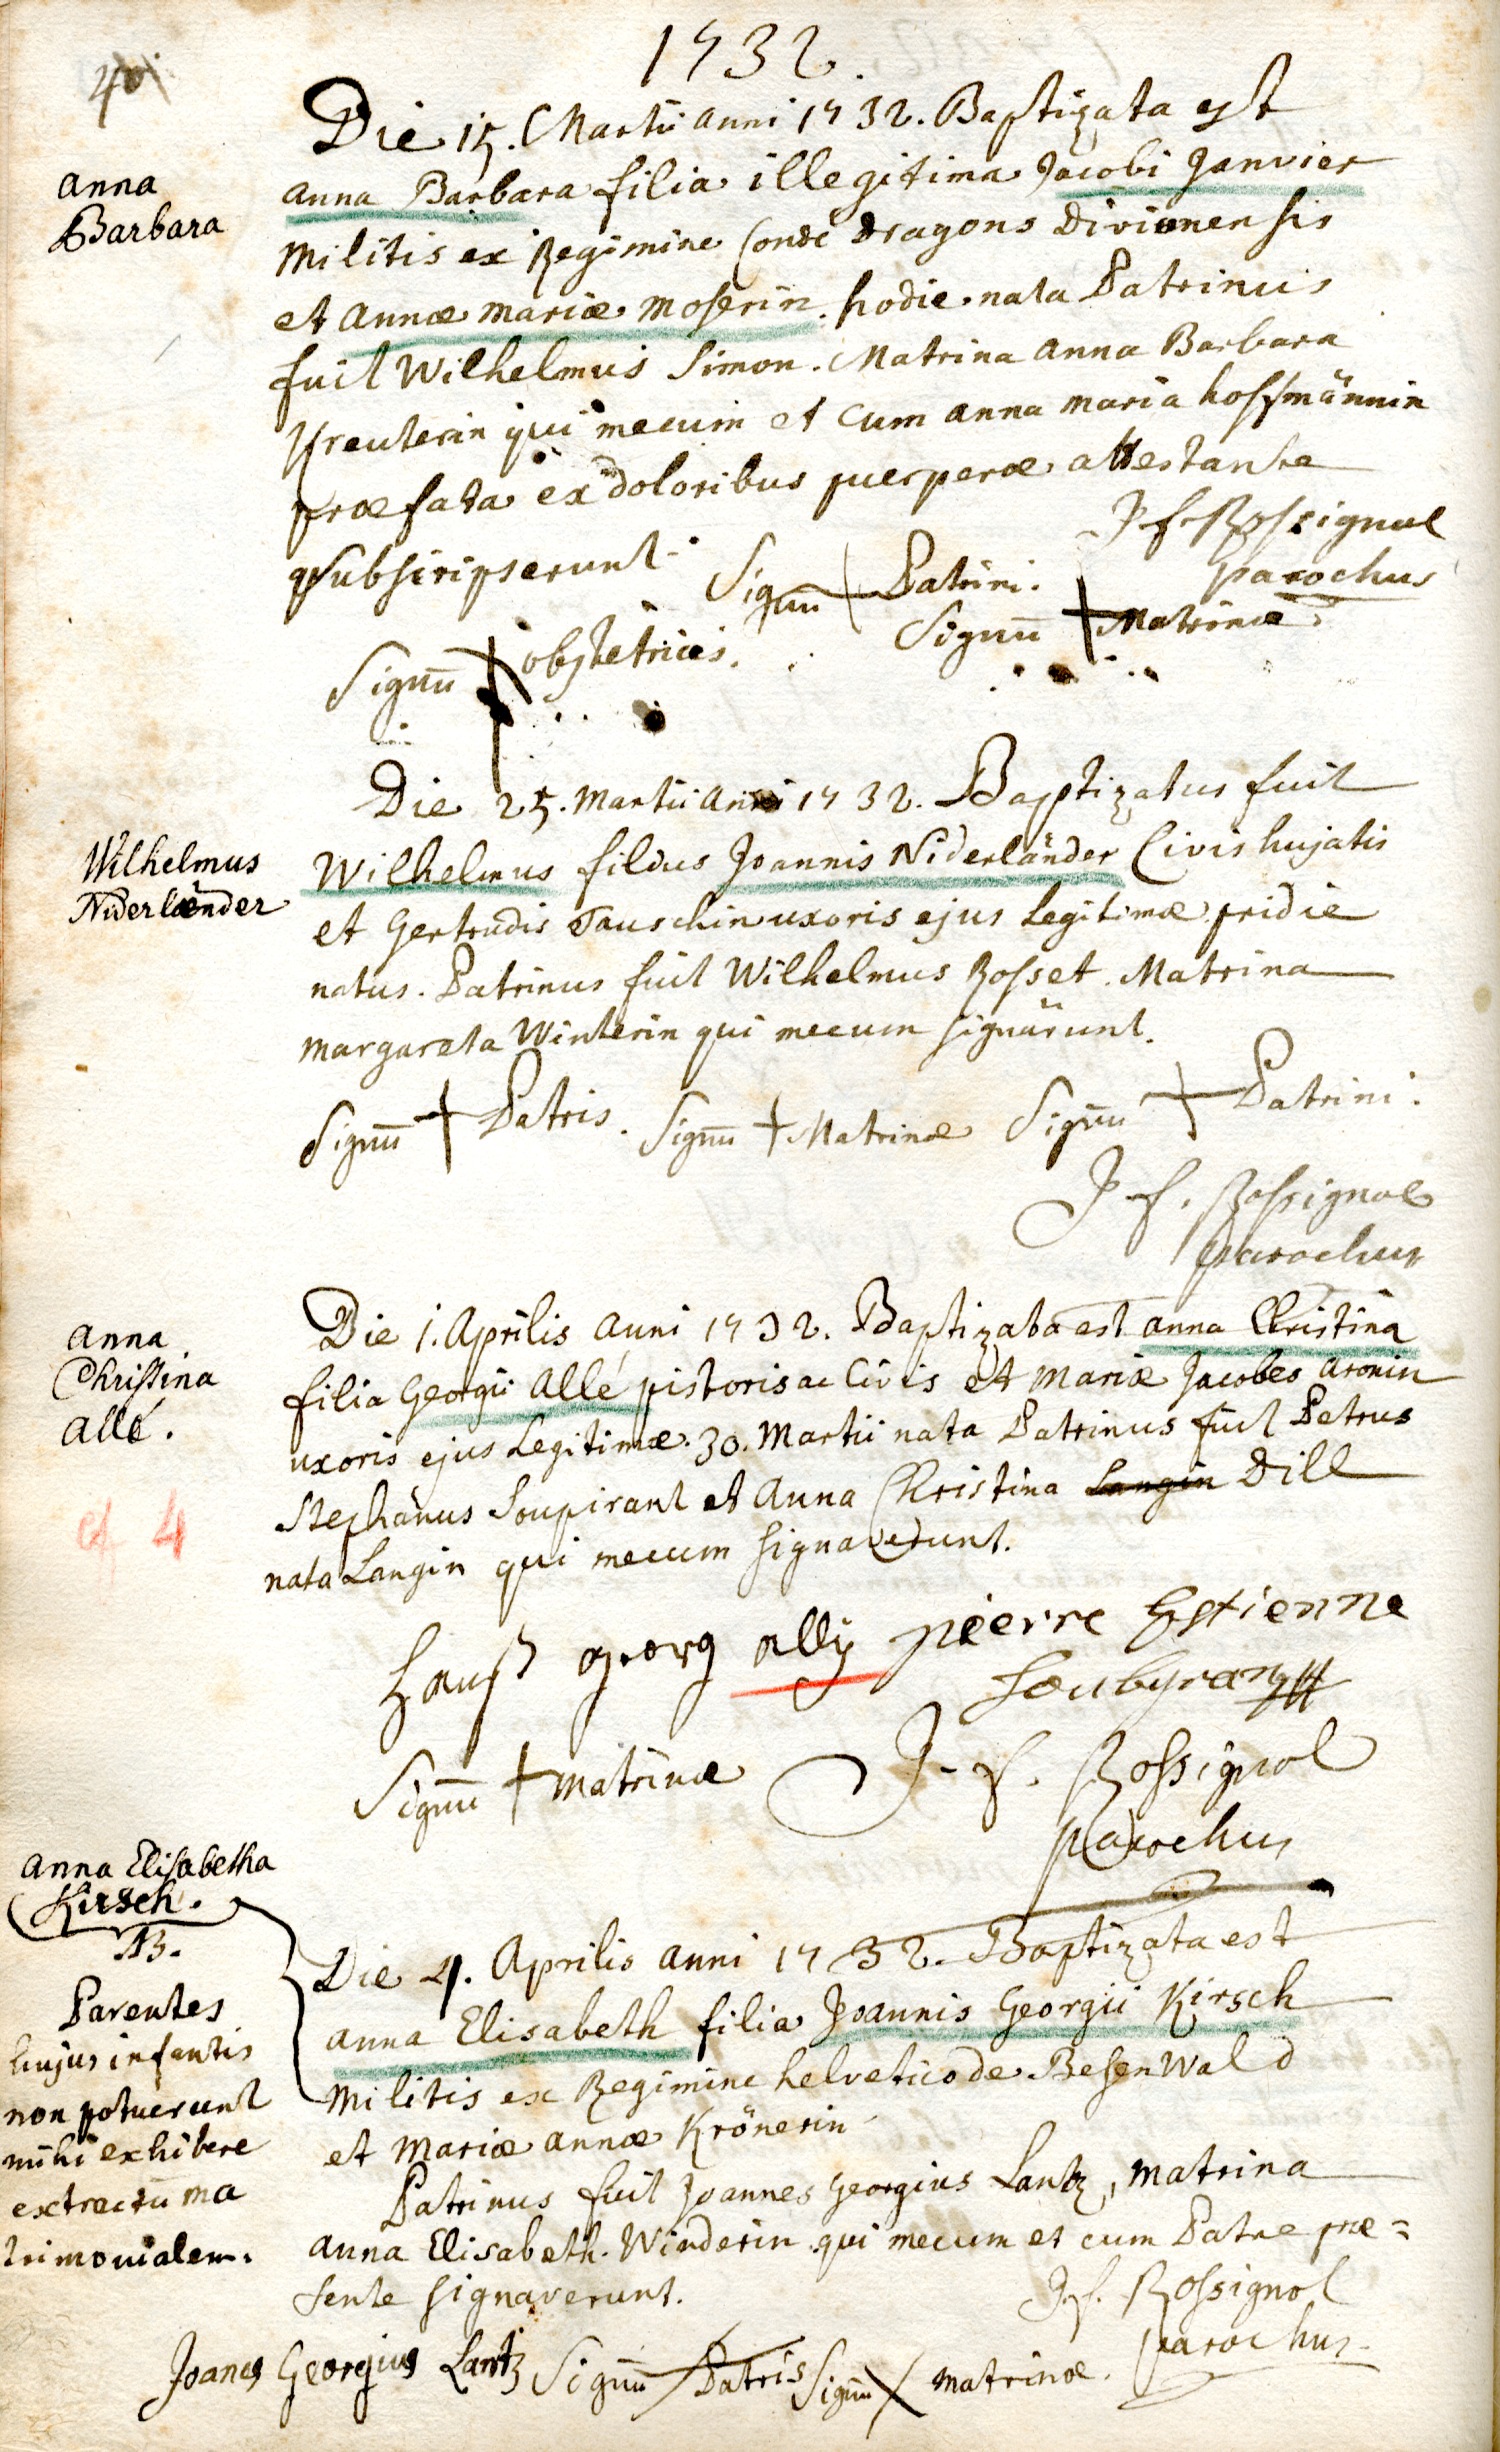 1732.
40
Die 15. Martii anni 1732. Baptizata est
anna Barbara filia illegitima Jacobi Janvier
militis ex Regimine Condé Dragons Divionensis
et annæ mariæ moserin. hodie nata Patrinus
fuit Wilhelmus Simon. Matrina anna Barbara
qui mecum et cum anna maria hoffmännin
præfata ex doloribus puerperæ attestante
subscripserunt.
J. f. Rossignol
parochus
Signū Patrini.
Signū + Matrinæ
Signū + obstetricis.
anna
Barbara
Die 25. Martii anni 1732. Baptizatus fuit
Wilhelmus filius Joannis Niderländer Civis hujatis
et Gertrudis Tauschin uxoris ejus Legitimæ pridie
natus. Patrinus fuit Wilhelmus Rosset. Matrina
margareta Winterin qui mecum signarunt.
Signū + Patris. Signū + Matrinæ Signū + Patrini.
J. f. Rossignol
parochus
Wilhelmus
Niderlænder
Die 1. Aprilis anni 1732. Baptizata est anna Christina
filia Georgii Allé pistoris ac Civis et mariæ Jacobes aronin
uxoris ejus Legitimæ. 30. Martii nata Patrinus fuit Petrus
Stephanus Soupirant et Anna Christina Langin Dill
nata Langin qui mecum signaverunt.
Hanß georg ally pierre Estienne
Soubyran
Signū + matrinæ J. f. Rossignol
parochus
anna
Christina
allé.
cf 4
Die 4. Aprilis anni 1732. Baptizata est
anna Elisabeth filia Joannis Georgii Kirsch
militis ex Regimine helvetico de Besenwald
et mariæ annæ Krönerin
Patrinus fuit Joannes Georgius Lantz, matrina
anna Elisabeth. Winderin qui mecum et cum Patre præ=
sente signaverunt.
J. f. Rossignol
parochus
Joanes Georgius Lantz Signū Patris Signū matrinæ.
anna Elisabetha
Kirsch.
NB.
Parentes
hujus infantis
non potuerunt
mihi exhibere
extractū ma
trimonialem.